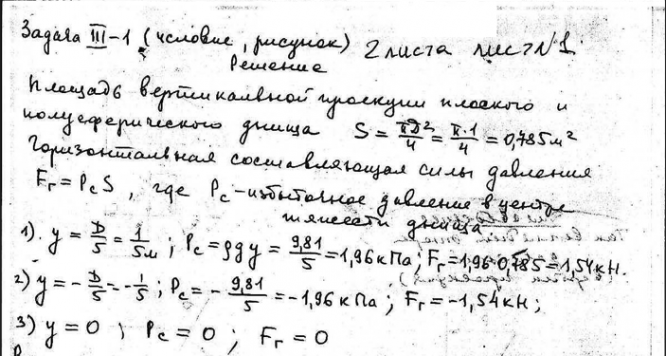 Задача III-1 (условие, рисунок) 2 листа лист №1
Решение
Площадь вертикальной проекции плоского и
полусферического днища S = πD²/4 = π·1/4 = 0,785 м²
Горизонтальная составляющая силы давления
Fг = Pc S, где Pc - избыточное давление в центре
тяжести днища.
1). y = D/5 = 1/5 м; Pc = ρgy = 9,81/5 = 1,96 кПа; Fг = 1,96·0,785 = 1,54 кН.
2) y = -D/5 = -1/5; Pc = -9,81/5 = -1,96 кПа; Fг = -1,54 кН;
3) y = 0; Pc = 0; Fг = 0